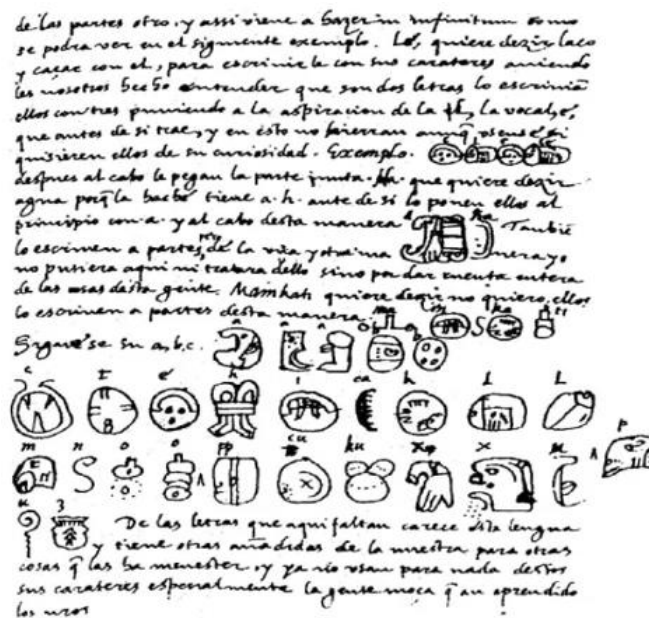 de las partes otro, y assi viene a hazer in infinitum como
se podra ver en el siguiente exemplo. Lé, quiere dezir laço
y caçar con el, para escrivirle con sus carateres aviendo
les nosotros hecho entender que son dos letras lo escrivian
ellos con tres puniendo a la aspiracion de la l, la vocal, é,
que antes de si trae, y en esto no hierran aunq̃ usense si
quisieren ellos de su curiosidad. Exemplo.
despues al cabo le pegan la parte junta. Ha. que quiere dezir
agua porq̃ la haché tiene a. h. ante de si lo ponen ellos al
principio con a. y al cabo desta manera Tambiē
lo escriven a partes, de la una y otra ma nera yo
no pusiera aqui ni tratara dello sino por dar cuenta entera
de las cosas desta gente. Mainkati quiere dezir no quiero, ellos
lo escriven a partes desta manera. ma i n ka ti
Siguese su a, b, c. a a a b b
c t é h i ca k l l
m n o o pp cu ku x x u p
u z De las letras que aqui faltan carece esta lengua
y tiene otras añadidas de la nuestra para otras
cosas q̃ las ha menester, y ya no usan para nada destos
sus carateres especialmente la gente moça q̃ an aprendido
los nros